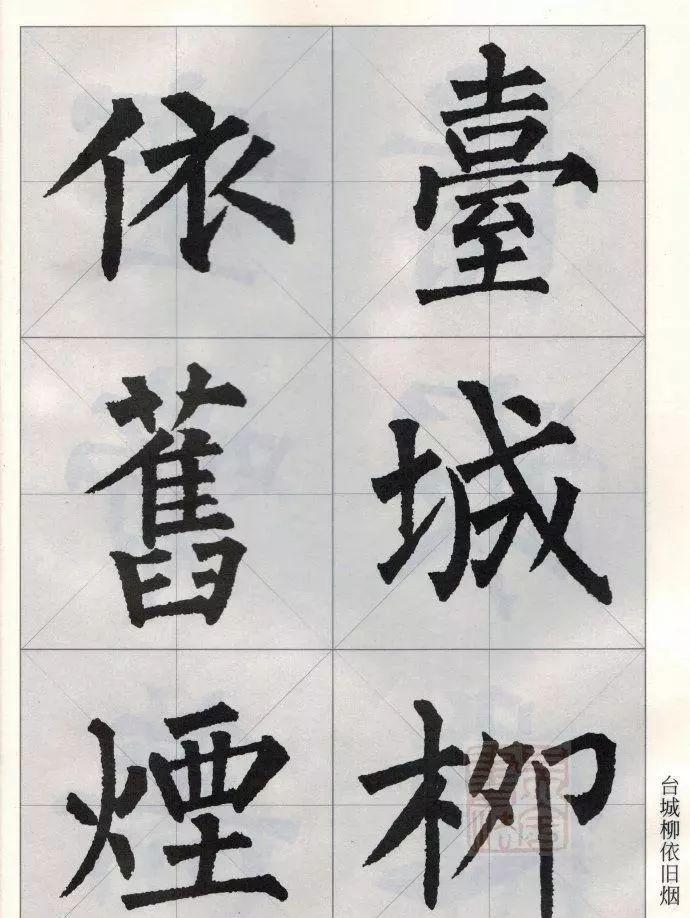 臺城柳
依舊煙
台城柳依旧烟